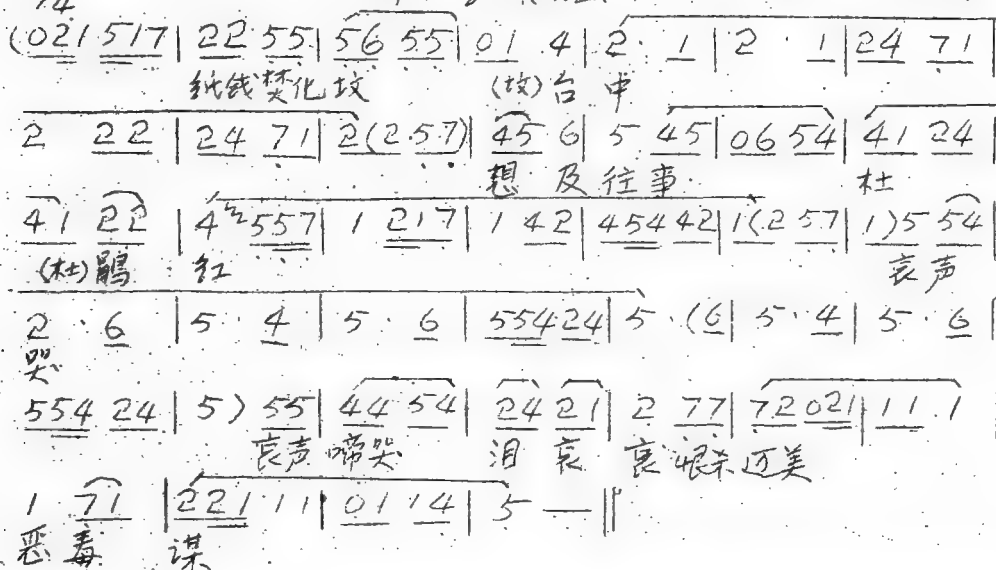 (021 517 | 22 55 | 56 55 | 01 4 | 2 · 1 | 2 · 1 | 24 71 |
纸钱焚化坟 (坟)台 中
2 22 | 24 71 | 2(2 57) | 45 6 | 5 45 | 06 54 | 41 24 |
想 及 往 事 杜
41 22 | 4 557 | 1 217 | 1 42 | 454 42 | 1(2 57 | 1)5 54 |
(杜)鹃 红 哀 声
2 · 6 | 5 · 4 | 5 · 6 | 554 24 | 5 · (6 | 5 · 4 | 5 · 6 |
哭
554 24 | 5) 55 | 44 54 | 24 21 | 2 77 | 72 021 | 11 1
哀声 啼哭 泪 哀 哀 恨杀 美
1 71 | 221 11 | 01 14 | 5 — ‖
恶 毒 谋